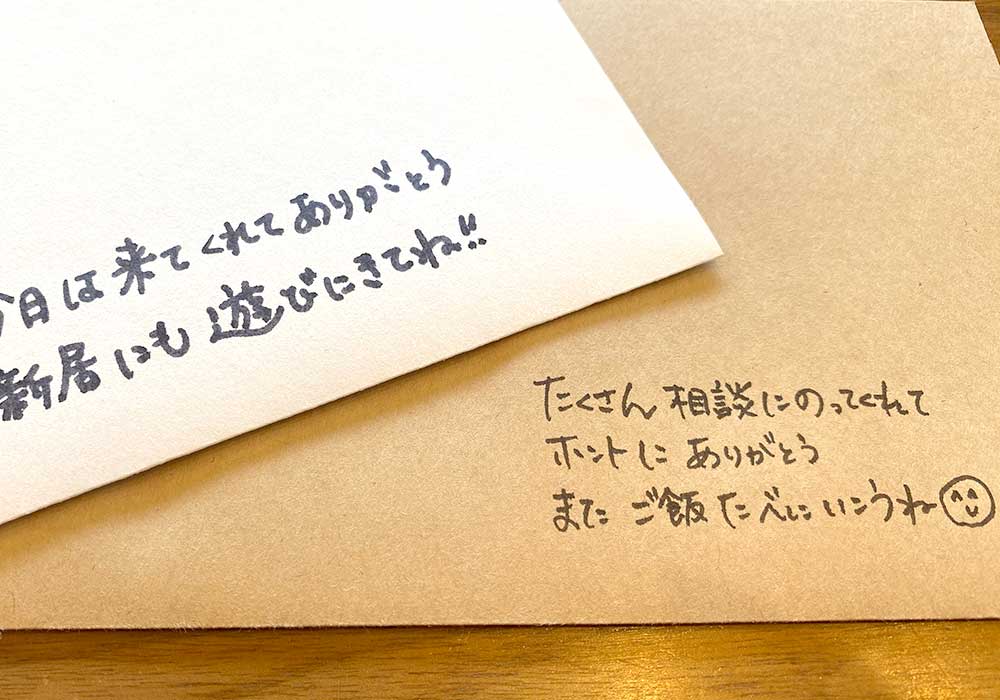 今日は来てくれてありがとう
新居にも遊びにきてね!!
たくさん相談にのってくれて
ホントにありがとう
またご飯たべにいこうね